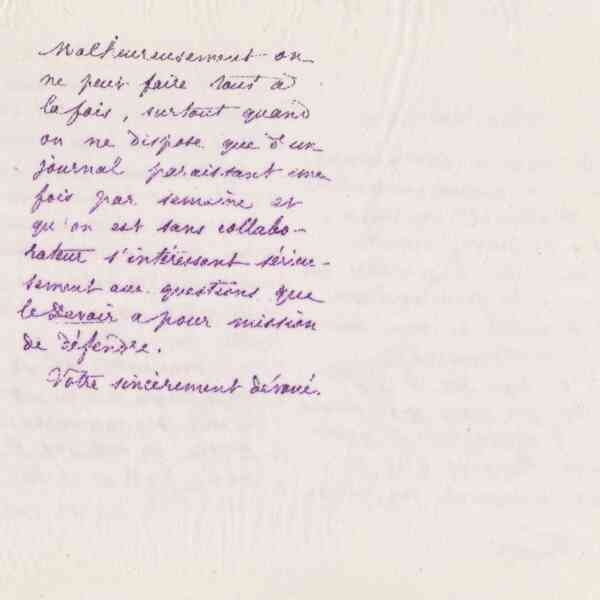 Malheureusement on
ne peut faire tout à
la fois, surtout quand
on ne dispose que d'un
journal paraissant une
fois par semaine et
qu'on est sans collabo-
rateur s'intéressant sérieu-
sement aux questions que
le Devoir a pour mission
de défendre.
Votre sincèrement dévoué.